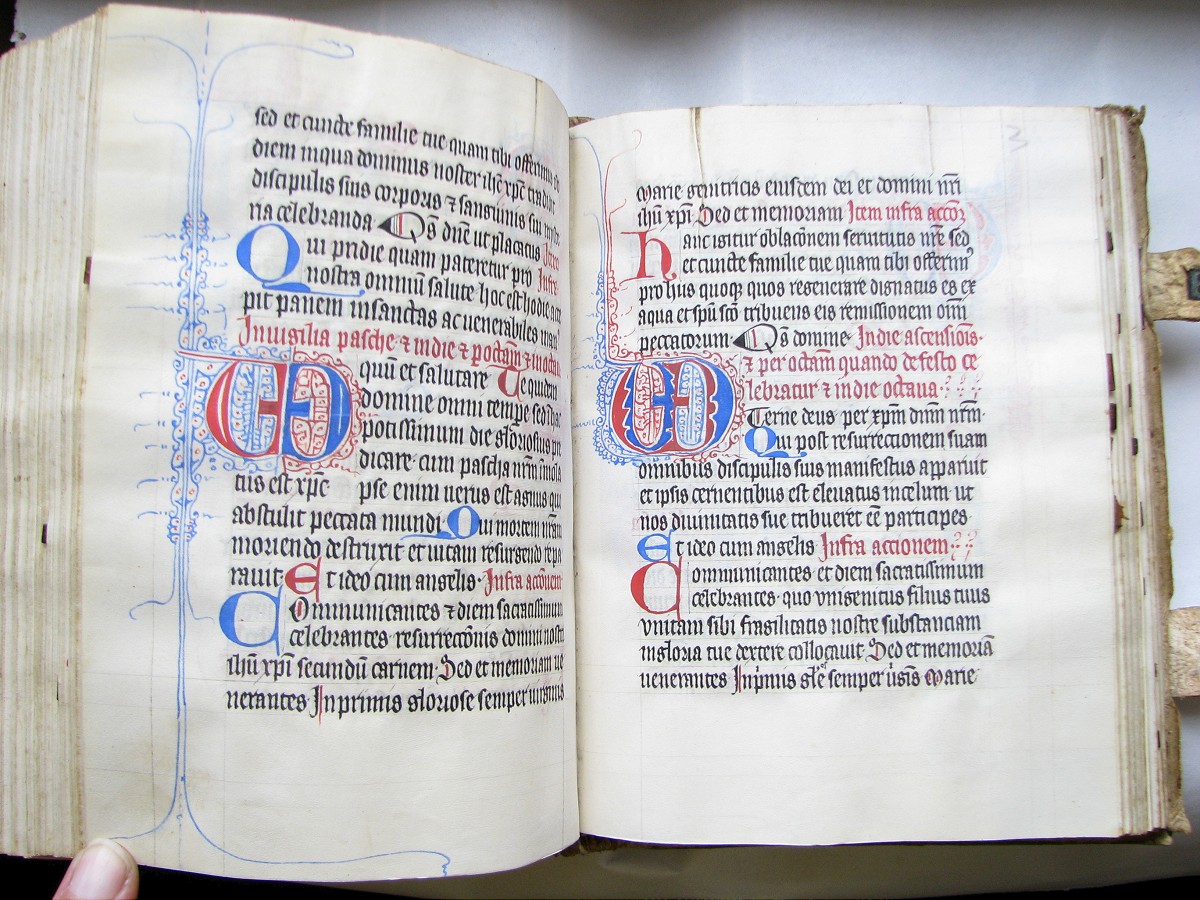 sed et cuncte familie tue quam tibi offerimus ob
diem inqua dominus noster ihc xpc tradidit
discipulis suis corporis ⁊ sanguinis sui
ria celebranda Qs dne ut placatus
Qui pridie quam pateretur pro Infra
nostra omniū salute hoc est hodie acce
pit panem insanctas ac uenerabiles man
Inuigilia pasche ⁊ indie ⁊ p octam ⁊ inocta
quū et salutare Te quidem
domine omni tempe sed
potissimum die gloriosius pre
dicare cum pascha nrm imola
tus est xpc pse enim uerus est agnus qui
abstulit peccata mundi Qui mortem nram
moriendo destruxit et uitam resurgendo repa
rauit Et ideo cum angelis Infra accōnem
Communicantes ⁊ diem sacratissimum
celebrantes resurreccōnis domini nostri
ihū xpi secundū carnem Sed et memoriam ue
nerantes Inprimis gloriose semper uirginis
3
marie genitricis eiusdem dei et domini nrī
ihū xpi Sed et memoriam Item infra accōȝ
hanc igitur oblacōnem seruitutis nrē sed
et cuncte familie tue quam tibi offerimꝰ
pro hijs quoqꝫ quos regenerare dignatus es ex
aqua et spū scō tribuens eis remissionem oīm
peccatorum Qs domine Indie ascensiōis
⁊ per octam quando de festo ce
lebratur ⁊ indie octaua
Eterne deus per xpm dnm nrm
Qui post resurrectionem suam
omnibus discipulis suis manifestus apparuit
et ipsis cernentibus est eleuatus incelum ut
nos diuinitatis sue tribueret eē participes
Et ideo cum angelis Infra accionem
Communicantes et diem sacratissimum
celebrantes quo vnigenitus filius tuus
vnitam sibi fragilitatis nostre substanciam
ingloria tue dextere collocauit Sed et memoriā
uenerantes Inprimis glē semper uirgīs marie